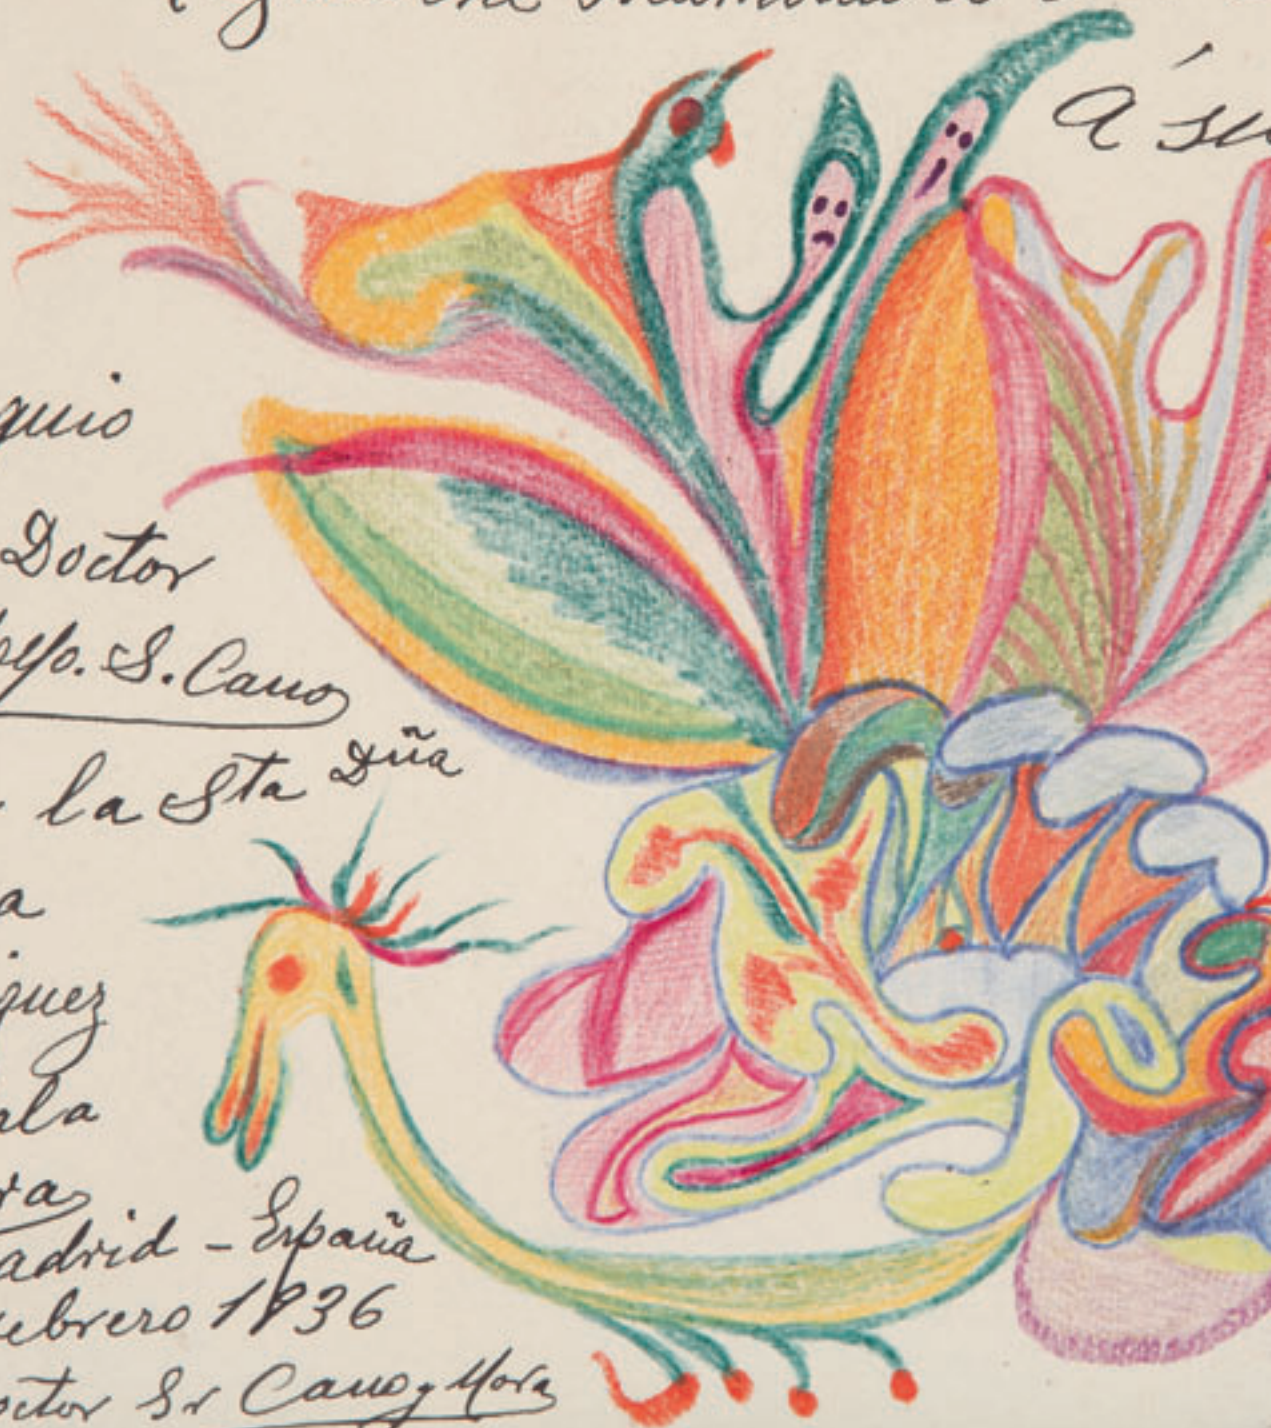 á su
quio
Doctor
lfo. S. Cano
la Sta Dña
a
guez
rla
ra
adrid - España
ebrero 1936
octor Sr Cano y Mora